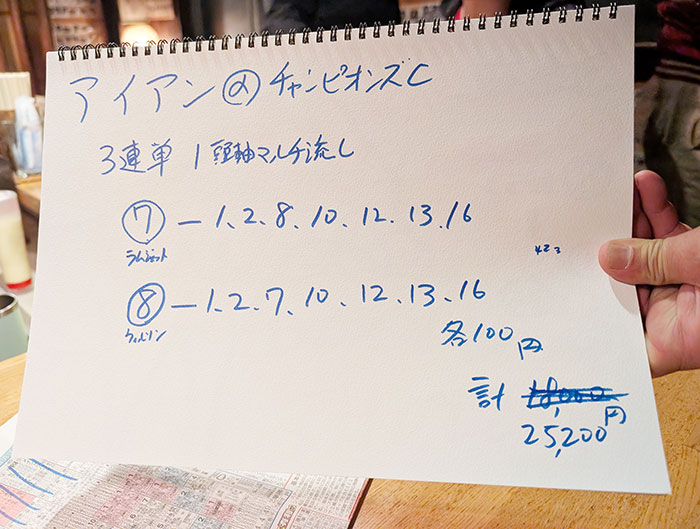 アイアンのチャンピオンズC
3連単 1頭軸マルチ流し
⑦ー1、2、8、10、12、13、16
ラムジェット
⑧ー1、2、7、10、12、13、16
ウィルソン
各100円
計 25,200円